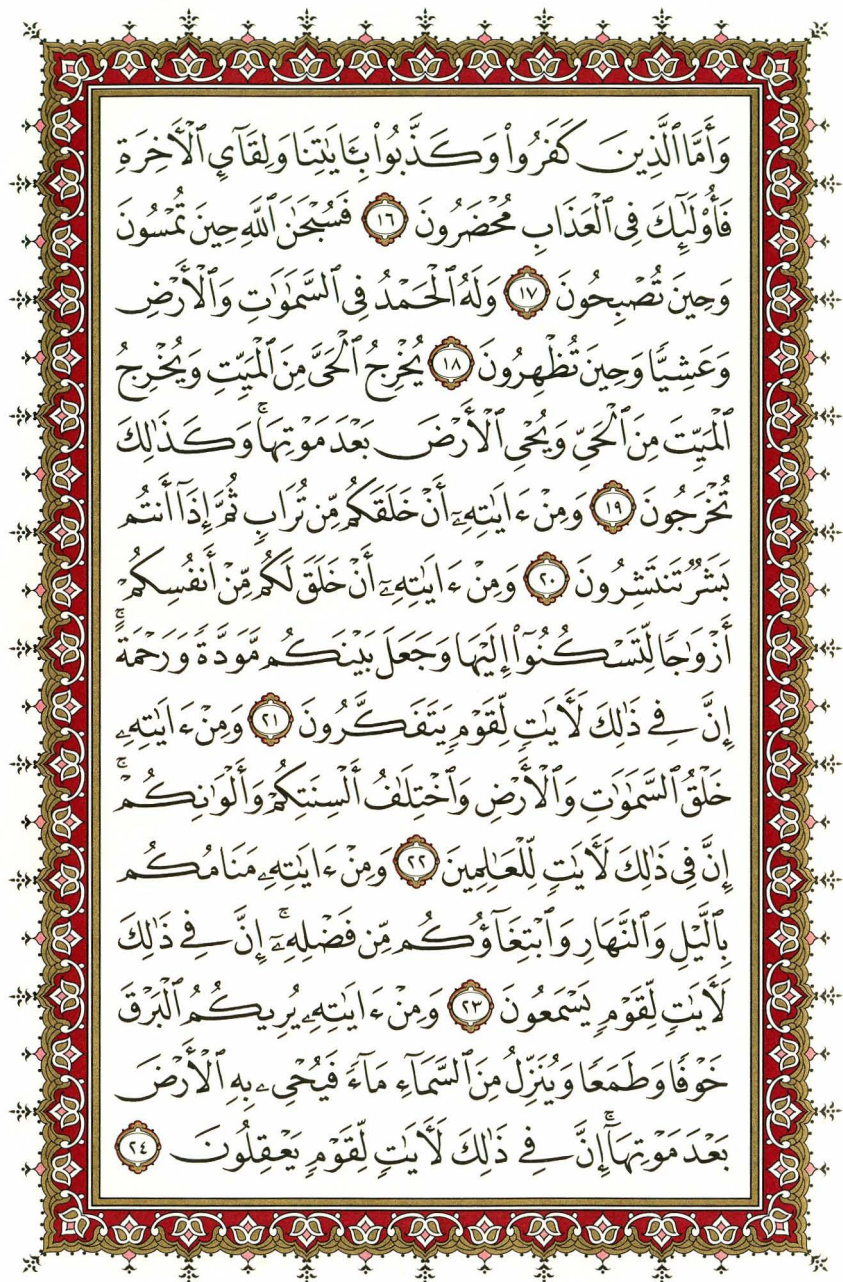 وَأَمَّا ٱلَّذِينَ كَفَرُوا۟ وَكَذَّبُوا۟ بِـَٔايَـٰتِنَا وَلِقَآئِ ٱلْـَٔاخِرَةِ
فَأُو۟لَـٰٓئِكَ فِى ٱلْعَذَابِ مُحْضَرُونَ ١٦ فَسُبْحَـٰنَ ٱللَّهِ حِينَ تُمْسُونَ
وَحِينَ تُصْبِحُونَ ١٧ وَلَهُ ٱلْحَمْدُ فِى ٱلسَّمَـٰوَٰتِ وَٱلْأَرْضِ
وَعَشِيًّا وَحِينَ تُظْهِرُونَ ١٨ يُخْرِجُ ٱلْحَىَّ مِنَ ٱلْمَيِّتِ وَيُخْرِجُ
ٱلْمَيِّتَ مِنَ ٱلْحَىِّ وَيُحْىِ ٱلْأَرْضَ بَعْدَ مَوْتِهَا ۚ وَكَذَٰلِكَ
تُخْرَجُونَ ١٩ وَمِنْ ءَايَـٰتِهِۦٓ أَنْ خَلَقَكُم مِّن تُرَابٍ ثُمَّ إِذَآ أَنتُم
بَشَرٌ تَنتَشِرُونَ ٢٠ وَمِنْ ءَايَـٰتِهِۦٓ أَنْ خَلَقَ لَكُم مِّنْ أَنفُسِكُمْ
أَزْوَٰجًا لِّتَسْكُنُوٓا۟ إِلَيْهَا وَجَعَلَ بَيْنَكُم مَّوَدَّةً وَرَحْمَةً ۚ
إِنَّ فِى ذَٰلِكَ لَـَٔايَـٰتٍ لِّقَوْمٍ يَتَفَكَّرُونَ ٢١ وَمِنْ ءَايَـٰتِهِۦ
خَلْقُ ٱلسَّمَـٰوَٰتِ وَٱلْأَرْضِ وَٱخْتِلَـٰفُ أَلْسِنَتِكُمْ وَأَلْوَٰنِكُمْ ۚ
إِنَّ فِى ذَٰلِكَ لَـَٔايَـٰتٍ لِّلْعَـٰلِمِينَ ٢٢ وَمِنْ ءَايَـٰتِهِۦ مَنَامُكُم
بِٱلَّيْلِ وَٱلنَّهَارِ وَٱبْتِغَآؤُكُم مِّن فَضْلِهِۦٓ ۚ إِنَّ فِى ذَٰلِكَ
لَـَٔايَـٰتٍ لِّقَوْمٍ يَسْمَعُونَ ٢٣ وَمِنْ ءَايَـٰتِهِۦ يُرِيكُمُ ٱلْبَرْقَ
خَوْفًا وَطَمَعًا وَيُنَزِّلُ مِنَ ٱلسَّمَآءِ مَآءً فَيُحْىِۦ بِهِ ٱلْأَرْضَ
بَعْدَ مَوْتِهَآ ۚ إِنَّ فِى ذَٰلِكَ لَـَٔايَـٰتٍ لِّقَوْمٍ يَعْقِلُونَ ٢٤